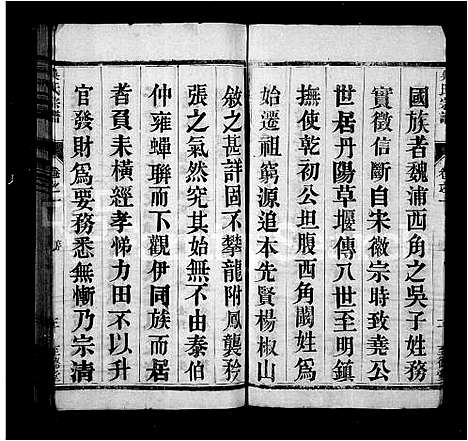 國族者魏浦西角之吳子姓務
實徵信斷自宋徽宗時致堯公
世居丹陽草堰傳八世至明鎮
撫使乾初公坦腹西角闞姓爲
始遷祖窮源追本先賢楊椒山
敘之甚詳固不攀龍附鳳襲矜
張之氣然究其始無不由泰伯
仲雍蟬聯而下觀伊同族而居
者負耒橫經孝悌力田不以升
官發財爲要務悉無慚乃宗清
吳氏宗譜
卷之一
序